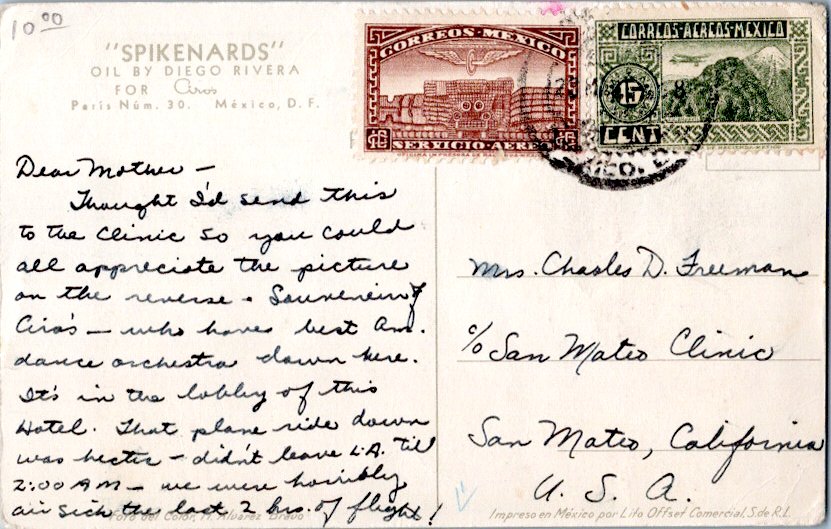 10⁰⁰
"SPIKENARDS"
OIL BY DIEGO RIVERA
FOR Ciro's
París Núm. 30. México, D. F.
CORREOS · MEXICO
SERVICIO · AEREO
CORREOS · AEREOS · MEXICO
15
CENT
Dear Mother —
Thought I'd send this
to the Clinic so you could
all appreciate the picture
on the reverse. Souvenir of
Ciro's — who haves best Am.
dance orchestra down here.
It's in the lobby of this
Hotel. That plane ride down
was hectic — didn't leave L.A. 'til
2:00 AM — we were horribly
air sick the last 2 hrs. of flight!
Mrs. Charles D. Freeman
c/o San Mateo Clinic
San Mateo, California
U. S. A.
Foto del Color, M. Alvarez Bravo
Impreso en México por Lito Offset Comercial, S. de R.L.